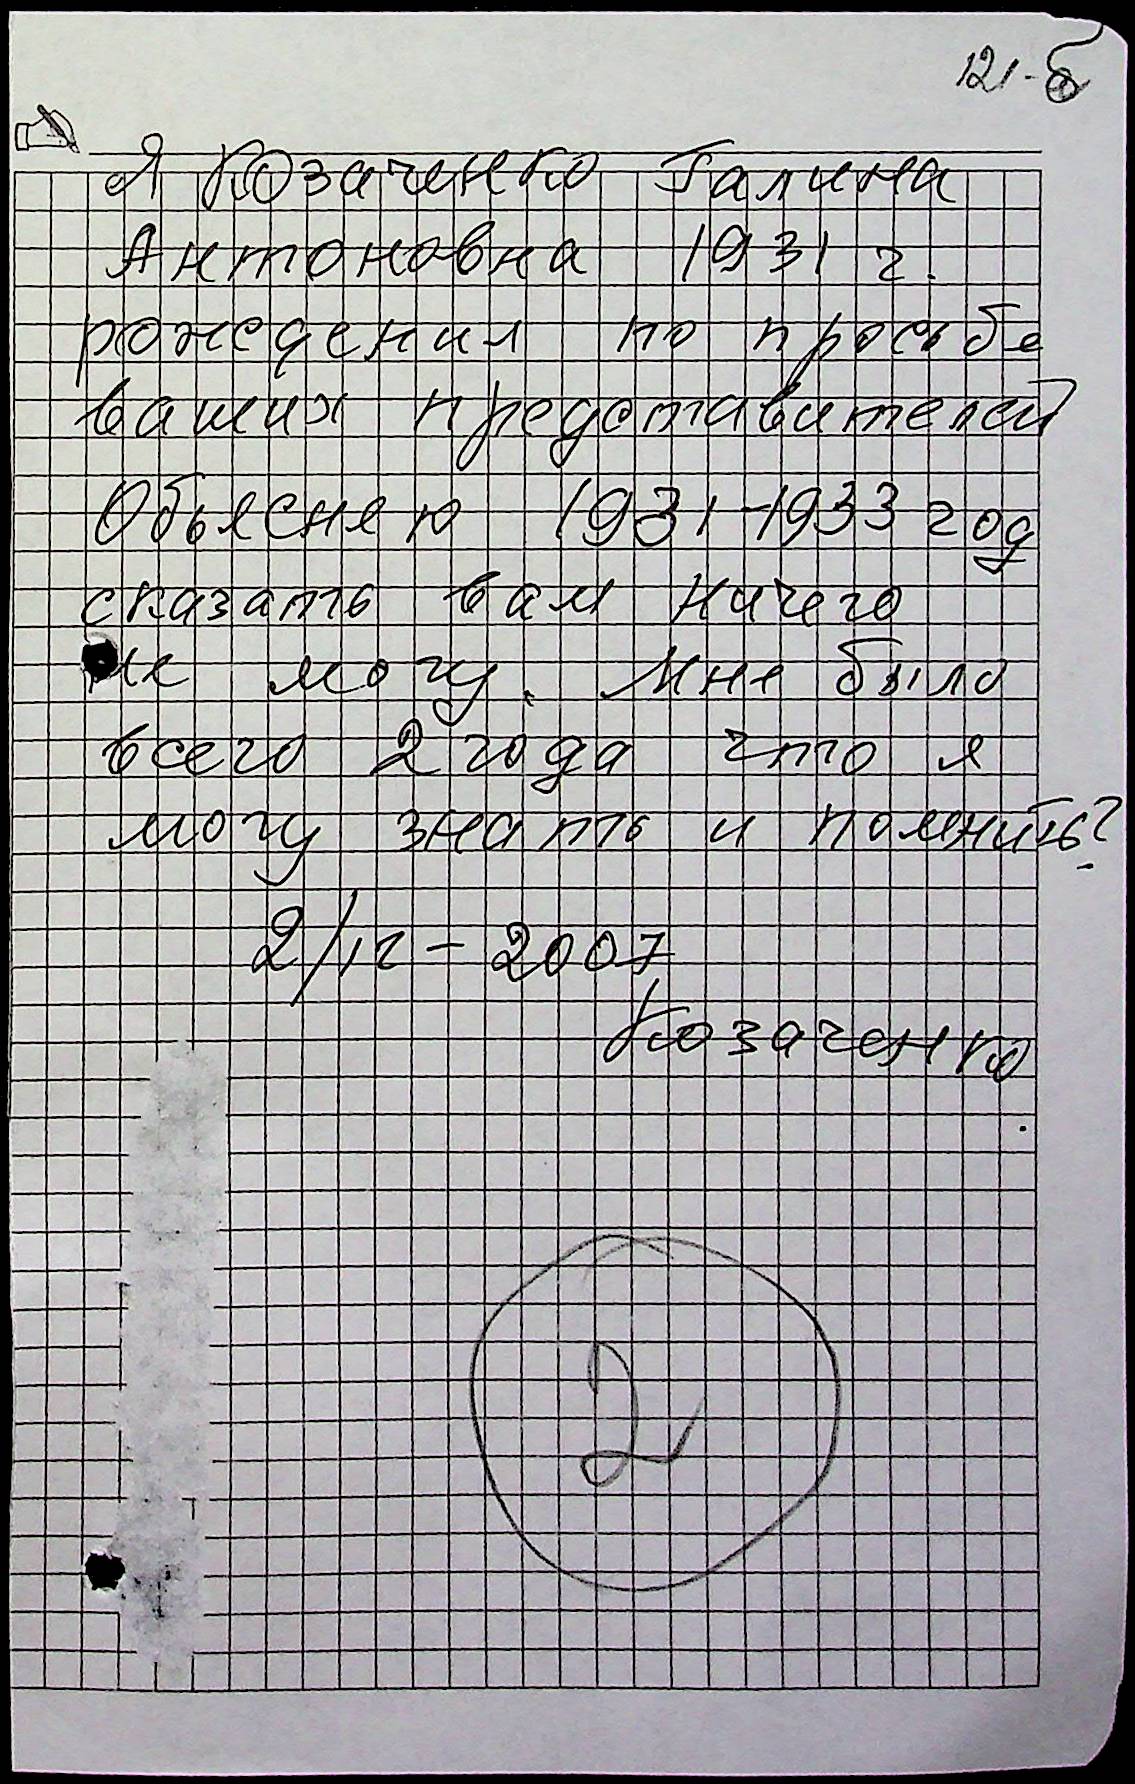 121-б
Я Козаченко Галина
Антоновна 1931 г.
рождения по просьбе
ваших представителей
Обьясняю 1931-1933 год
сказать вам ничего
не могу. Мне было
всего 2 года что я
могу знать и помнить?
2/ - 2007
Козаченко
2